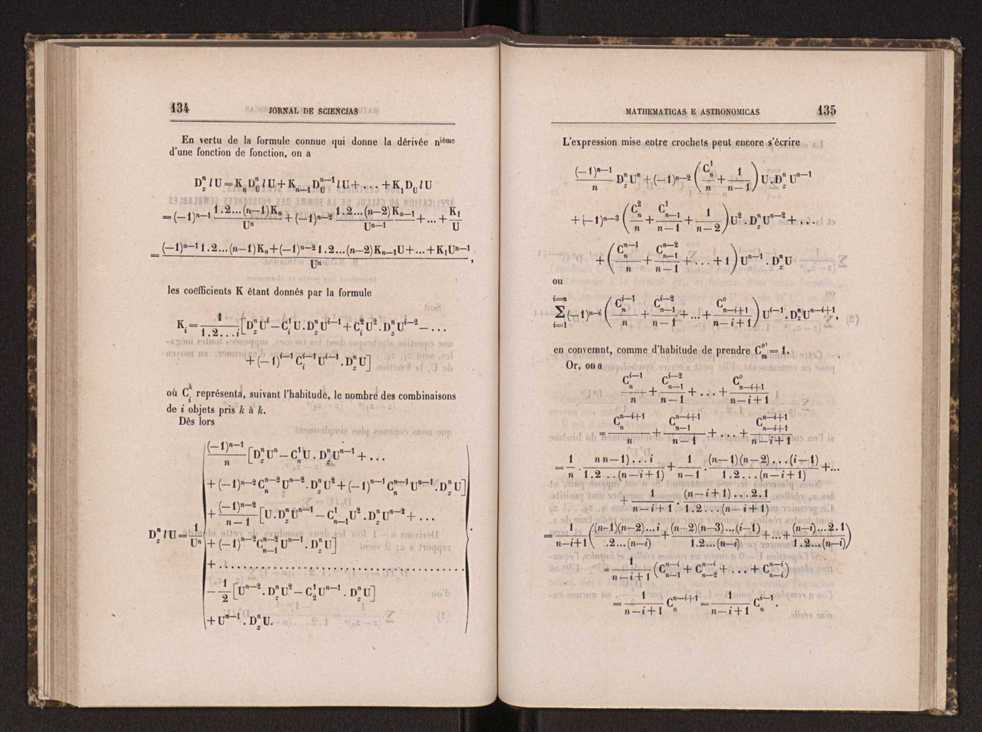 134 JORNAL DE SCIENCIAS
En vertu de la formule connue qui donne la dérivée nième
d'une fonction de fonction, on a
D_z^n lU = K_n D_U^n lU + K_{n−1} D_U^{n−1} lU + . . . + K_1 D_U lU
= (−1)^{n−1} \frac{1.2...(n−1)K_n}{U^n} + (−1)^{n−2} \frac{1.2...(n−2)K_{n−1}}{U^{n−1}} + ... + \frac{K_1}{U}
= \frac{(−1)^{n−1} 1.2...(n−1)K_n + (−1)^{n−2} 1.2...(n−2)K_{n−1}U + ... + K_1U^{n−1}}{U^n},
les coefficients K étant donnés par la formule
K_i = \frac{1}{1.2...i} [D_z^n U^i − C_i^1 U . D_z^n U^{i−1} + C_i^2 U^2 . D_z^n U^{i−2} − . . .
+ (−1)^{i−1} C_i^{i−1} U^{i−1} . D_z^n U]
où C_i^k représenta, suivant l'habitude, le nombre des combinaisons
de i objets pris k à k.
Dès lors
\frac{(−1)^{n−1}}{n} [D_z^n U^n − C_n^1 U . D_z^n U^{n−1} + . . .
+ (−1)^{n−2} C_n^{n−2} U^{n−2} . D_z^n U^2 + (−1)^{n−1} C_n^{n−1} U^{n−1} . D_z^n U]
+ \frac{(−1)^{n−2}}{n−1} [U . D_z^n U^{n−1} − C_{n−1}^1 U^2 . D_z^n U^{n−2} + . . .
D_z^n lU = \frac{1}{U^n} + (−1)^{n−2} C_{n−1}^{n−2} U^{n−1} . D_z^n U]
+ . . . . . . . . . . . . . . . . . . . . . . . . . . . . . .
− \frac{1}{2} [U^{n−2} . D_z^n U^2 − C_2^1 U^{n−1} . D_z^n U]
+ U^{n−1} . D_z^n U.
MATHEMATICAS E ASTRONOMICAS 135
L'expression mise entre crochets peut encore s'écrire
\frac{(−1)^{n−1}}{n} D_z^n U^n + (−1)^{n−2} (\frac{C_n^1}{n} + \frac{1}{n−1}) U . D_z^n U^{n−1}
+ (−1)^{n−3} (\frac{C_n^2}{n} + \frac{C_{n−1}^1}{n−1} + \frac{1}{n−2}) U^2 . D_z^n U^{n−2} + . . .
+ (\frac{C_n^{n−1}}{n} + \frac{C_{n−1}^{n−2}}{n−1} + . . . + 1) U^{n−1} . D_z^n U
ou
\sum_{i=1}^{i=n} (−1)^{n−i} (\frac{C_n^{i−1}}{n} + \frac{C_{n−1}^{i−2}}{n−1} + ... + \frac{C_{n−i+1}^o}{n−i+1}) U^{i−1} . D_z^n U^{n−i+1},
en convenant, comme d'habitude de prendre C_m^o = 1.
Or, on a
\frac{C_n^{i−1}}{n} + \frac{C_{n−1}^{i−2}}{n−1} + . . . + \frac{C_{n−i+1}^o}{n−i+1}
= \frac{C_n^{n−i+1}}{n} + \frac{C_{n−1}^{n−i+1}}{n−1} + . . . + \frac{C_{n−i+1}^{n−i+1}}{n−i+1}
= \frac{1}{n} . \frac{n n−1)...i}{1.2...(n−i+1)} + \frac{1}{n−1} . \frac{(n−1)(n−2)...(i−1)}{1.2...(n−i+1)} + ...
+ \frac{1}{n−i+1} . \frac{(n−i+1)...2.1}{1.2...(n−i+1)}
= \frac{1}{n−i+1} (\frac{(n−1)(n−2)...i}{.2...(n−i)} + \frac{(n−2)(n−3)...(i−1)}{1.2...(n−i)} + ... + \frac{(n−i)...2.1}{1.2...(n−i)})
= \frac{1}{n−i+1} (C_{n−1}^{n−i} + C_{n−2}^{n−i} + . . . + C_{n−i}^{n−i})
= \frac{1}{n−i+1} C_n^{n−i+1} = \frac{1}{n−i+1} C_n^{i−1}.